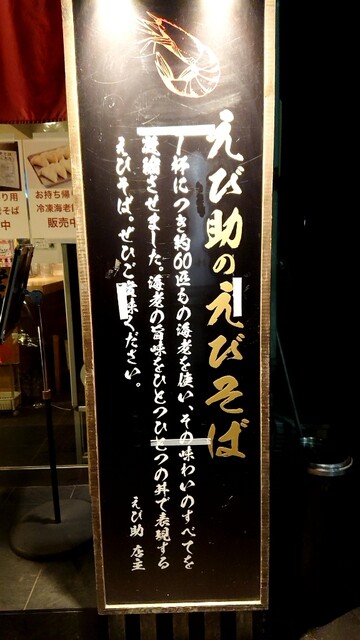 えび助のえびそば
一杯につき約60匹もの海老を使い、その味わいのすべてを
凝縮させました。海老の旨味をひとつひとつの丼で表現する
えびそば。ぜひご賞味ください。
えび助 店主
お持ち帰り
冷凍海老餃
販売中
り用
そば
中